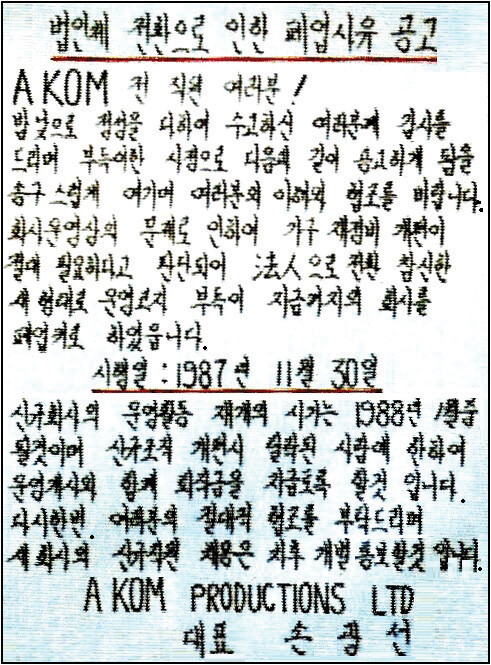 법인체 전환으로 인한 폐업사유 공고
AKOM 전 직원 여러분!
밤낮으로 정성을 다하여 수고하신 여러분께 감사를
드리며 부득이한 사정으로 다음과 같이 공고하게 됨을
송구스럽게 여기며 여러분의 이해와 협조를 바랍니다.
회사운영상의 문제로 인하여 기구 재정비 개편이
절대 필요하다고 판단되어 法人으로 전환 참신한
새 형태로 운영코자 부득이 지금까지의 회사를
폐업키로 하였읍니다.
시행일 : 1987년 11월 30일
신규회사의 운영활동 재개의 시기는 1988년 1월중
될것이며 신규조직 개편시 탈락된 사람에 한하여
운영개시와 함께 퇴직금을 지급토록 할것 입니다.
다시한번, 여러분의 절대적 협조를 부탁드리며
새 회사의 신규직원 채용은 차후 개별 통보할것 입니다.
AKOM PRODUCTIONS LTD
대표 손 광 선